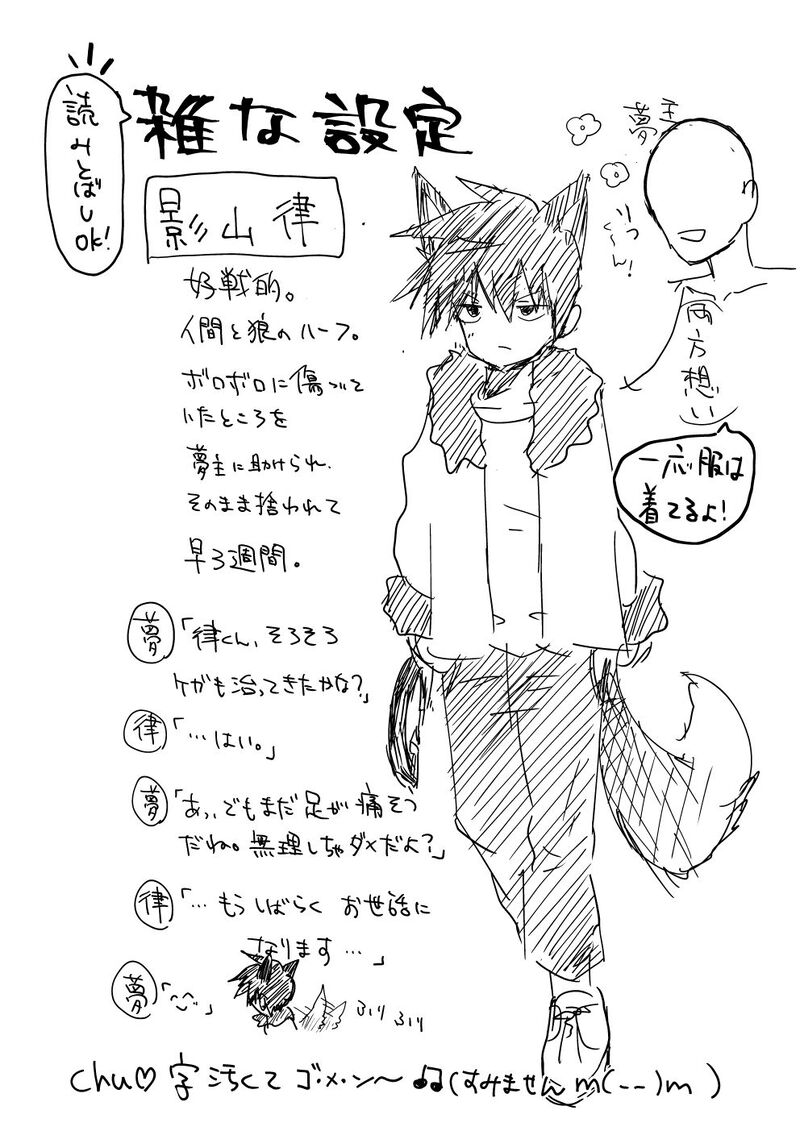 読みとばし
OK!
雑な設定
影山 律
好戦的。
人間と狼のハーフ。
ボロボロに傷づいて
いたところを
夢主に助けられ、
そのまま捨われて
早3週間。
夢「律くん、そろそろ
ケガも治ってきたかな?」
律「…はい。」
夢「あっ、でもまだ足が痛そう
だね。無理しちゃダメだよ?」
律「…もうしばらく お世話に
なります…」
夢「^^」
ふり ふり
夢主
りつ
く〜ん!
両方想い
一応服は
着てるよ!
chu♡字汚くて ゴ・メ・ン〜♫(すみませんm(--)m)